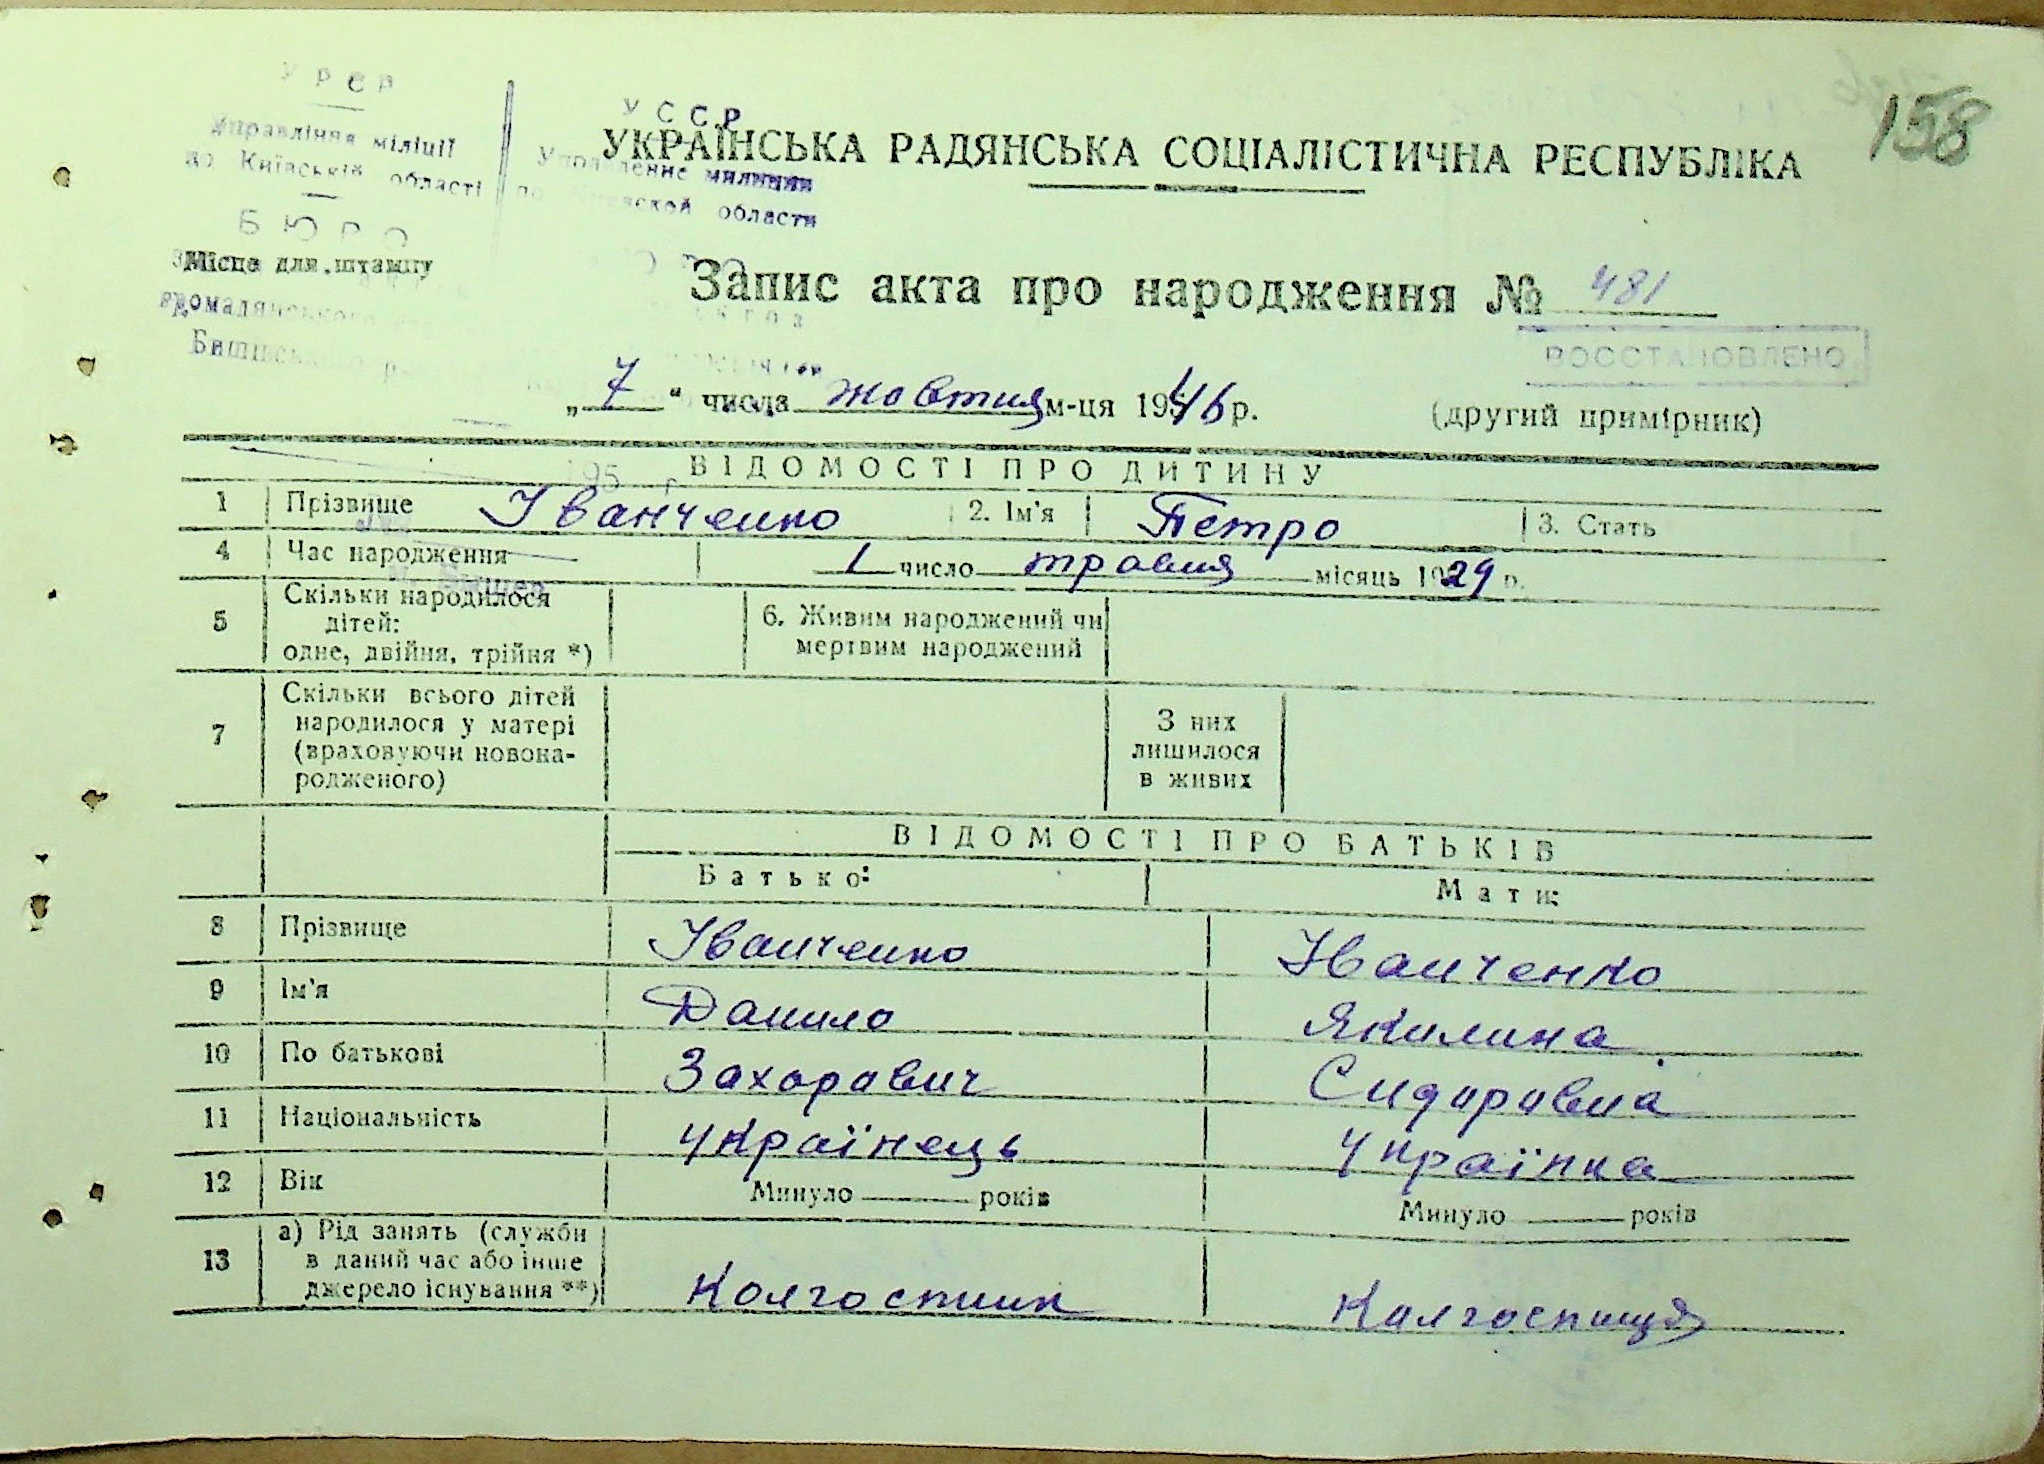 158
УРСР
Управління міліції
по Київській області
БЮРО
УССР
Управление милиции
по Киевской области
УКРАЇНСЬКА РАДЯНСЬКА СОЦІАЛІСТИЧНА РЕСПУБЛІКА
Місце для штампу
громадянського
Запис акта про народження № 481
ВОССТАНОВЛЕНО
„7“ числа жовтня м-ця 1946 р.
(другий примірник)
ВІДОМОСТІ ПРО ДИТИНУ
195
1 Прізвище Іванченко 2. Ім'я Петро 3. Стать
4 Час народження 1 число травня місяць 1929 р.
5 Скільки народилося дітей: одне, двійня, трійня *)
6. Живим народжений чи мертвим народжений
7 Скільки всього дітей народилося у матері (враховуючи новона-родженого)
З них лишилося в живих
ВІДОМОСТІ ПРО БАТЬКІВ
Батько: Мати:
8 Прізвище Іванченко Іванченко
9 Ім'я Данило Якилина
10 По батькові Захарович Сидоровна
11 Національність Українець Українка
12 Вік Минуло років Минуло років
13 а) Рід занять (служби в даний час або інше джерело існування **) Колгоспник Колгоспниця